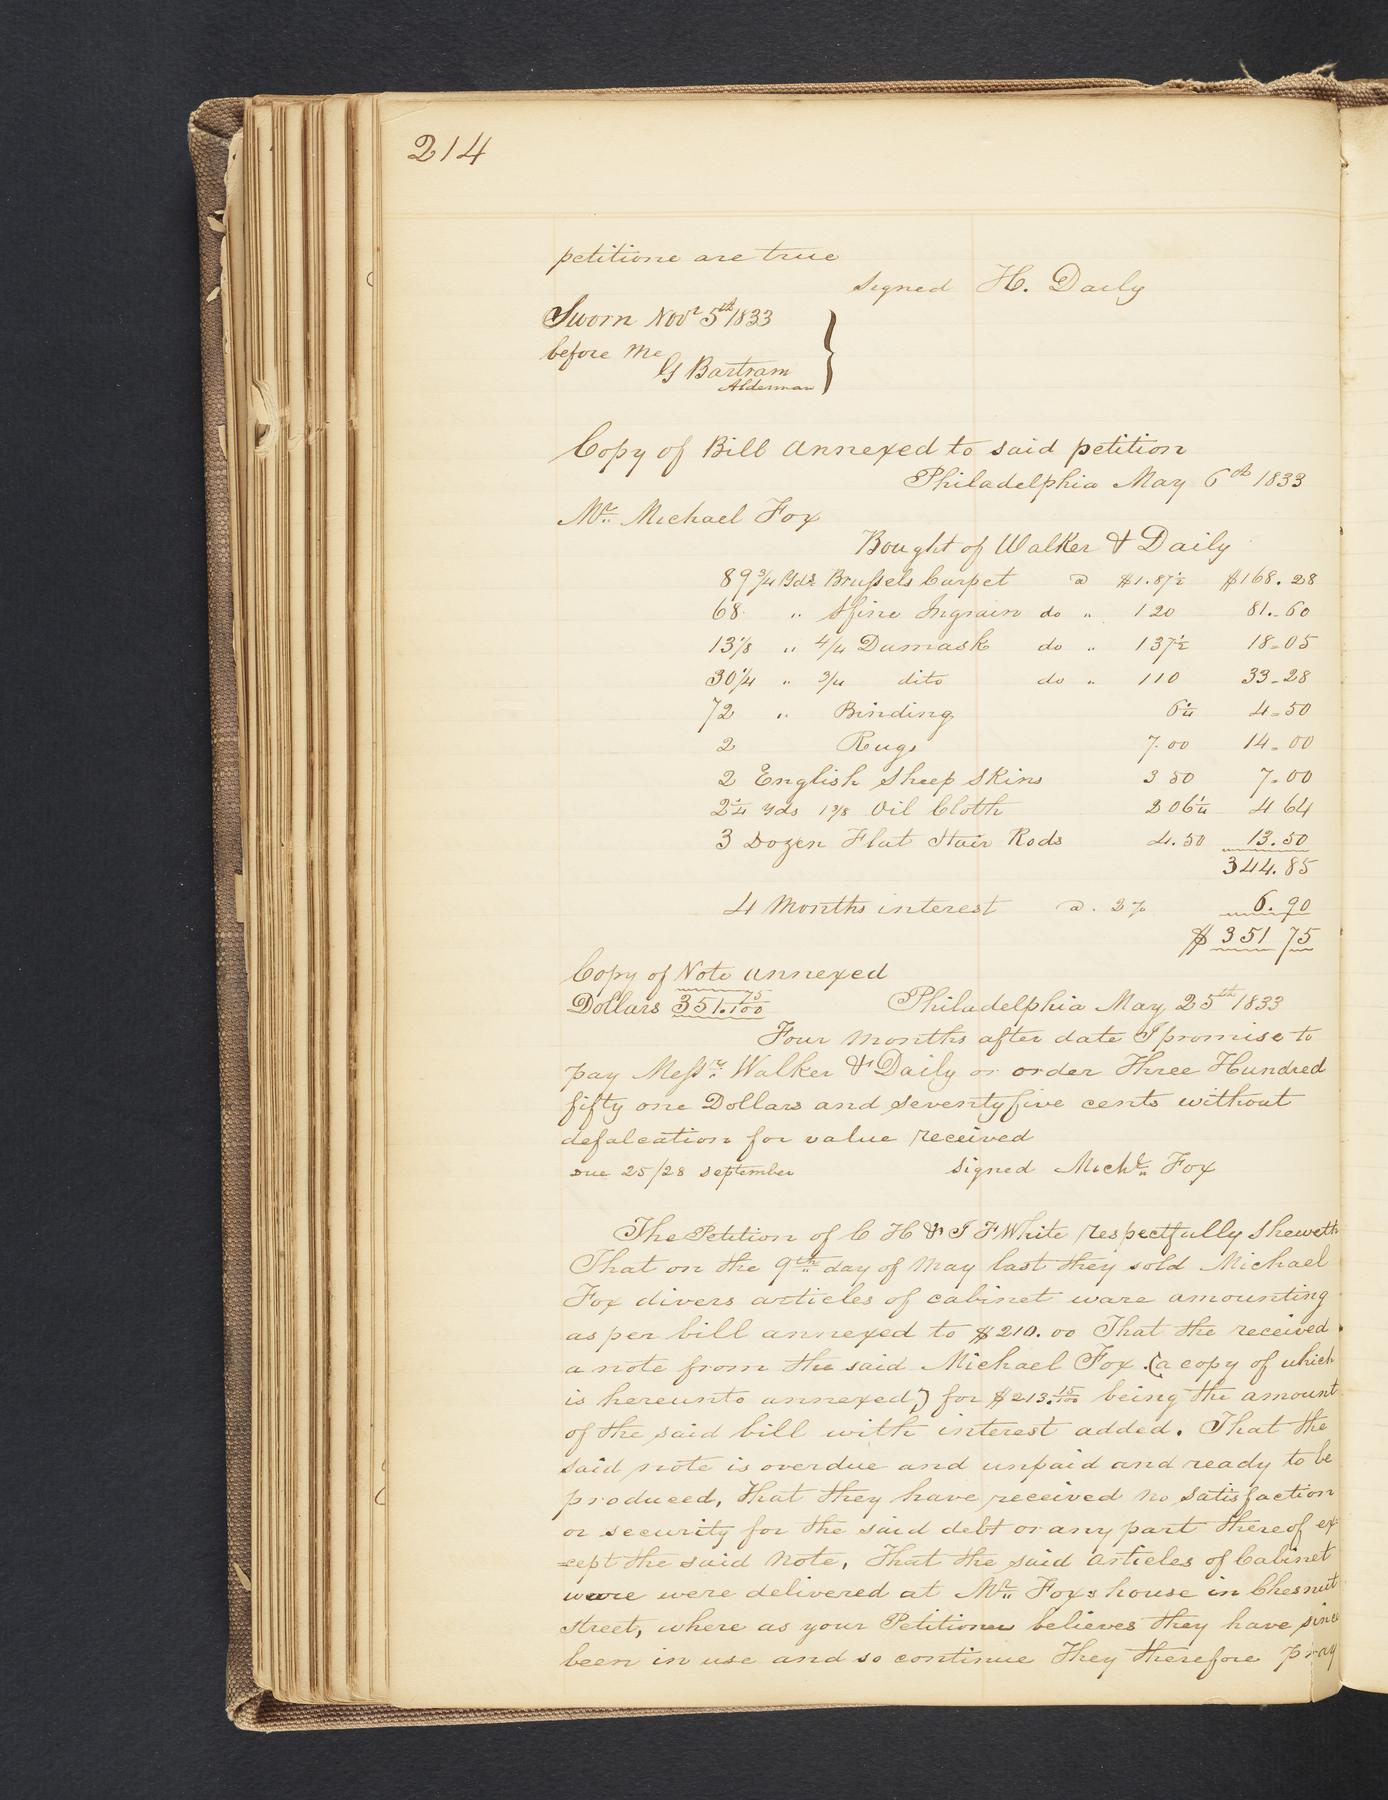 214
petitione are true
signed H. Daily
Sworn Novr 5th 1833
before me
G Bartram
Alderman
Copy of Bill annexed to said petition
Philadelphia May 6th 1833
Mr. Michael Fox
Bought of Walker & Daily
89 3/4 Yds Brussels Carpet @ $1.87½ $168.28
68 " Sfine Ingrain do " 120 81.60
13 1/8 " 4/4 Damask do " 137½ 18.05
30 1/4 " 3/4 dito do " 110 33.28
72 " Binding 6¼ 4.50
2 Rugs 7.00 14.00
2 English Sheep Skins 3 50 7.00
2¼ yds 1 3/8 Oil Cloth 2 06¼ 4 64
3 Dozen Flat Stair Rods 4.50 13.50
344.85
4 Months interest @. 2% 6.90
$ 351 75
Copy of Note annexed
Dollars 351.75/100 Philadelphia May 25th 1833
Four months after date I promise to
pay Messrs. Walker & Daily or order Three Hundred
fifty one Dollars and seventyfive cents without
defalcation for value received
Due 25/28 September signed Michl. Fox
The Petition of C H & J F White respectfully sheweth
That on the 9th day of May last they sold Michael
Fox divers articles of cabinet ware amounting
as per bill annexed to $210.00 That the received
a note from the said Michael Fox (a copy of which
is hereunto annexed,) for $213.15/100 being the amount
of the said bill with interest added. That the
said note is overdue and unpaid and ready to be
produced, that they have received no satisfaction
or security for the said debt or any part thereof ex=
=cept the said note, That the said articles of Cabinet
ware were delivered at Mr. Foxs house in Chesnut
street, where as your Petitioner believes they have since
been in use and so continue They therefore pray